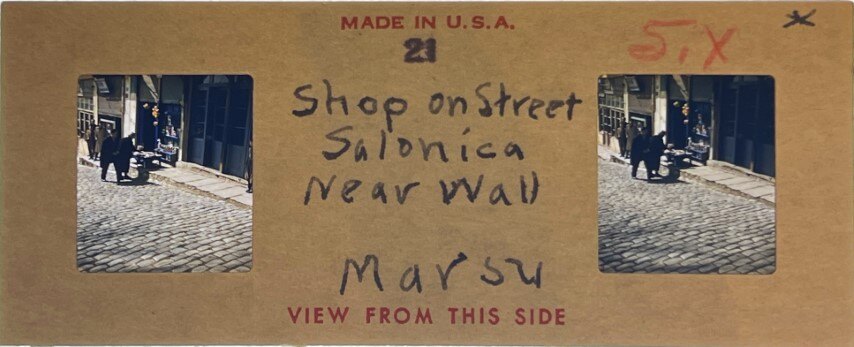 MADE IN U.S.A.
21
Six
Shop on Street
Salonica
Near Wall
Mar 54
VIEW FROM THIS SIDE